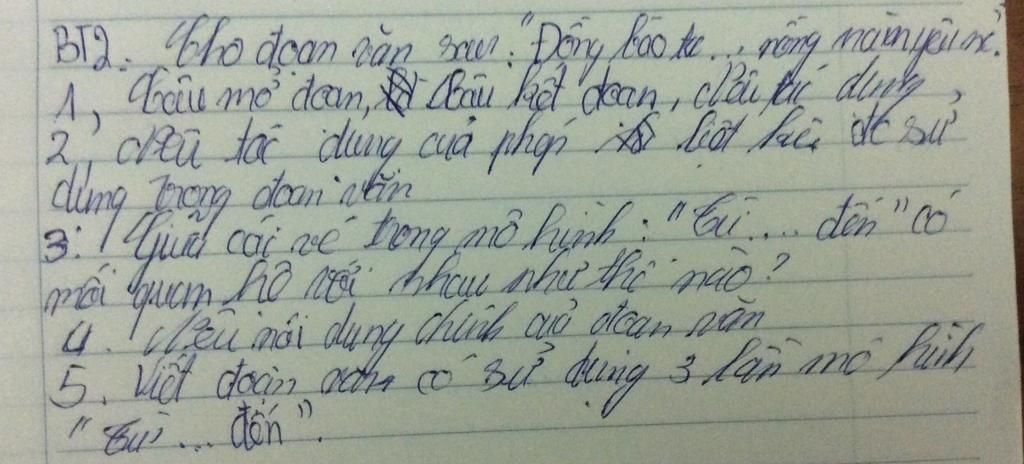 BT2. Cho đoạn văn sau: "Đồng bào ta ... nồng nàn yêu nc."
1, Câu mở đoạn, câu kết đoạn, nêu tác dụng,
2, Nêu tác dụng của phép liệt kê đc sử
dụng trong đoạn văn
3. Giữa các vế trong mô hình: "Từ .... đến" có
mối quan hệ với nhau như thế nào?
4. Nêu nội dung chính của đoạn văn
5. Viết đoạn văn có sử dụng 3 lần mô hình
"Từ ... đến".